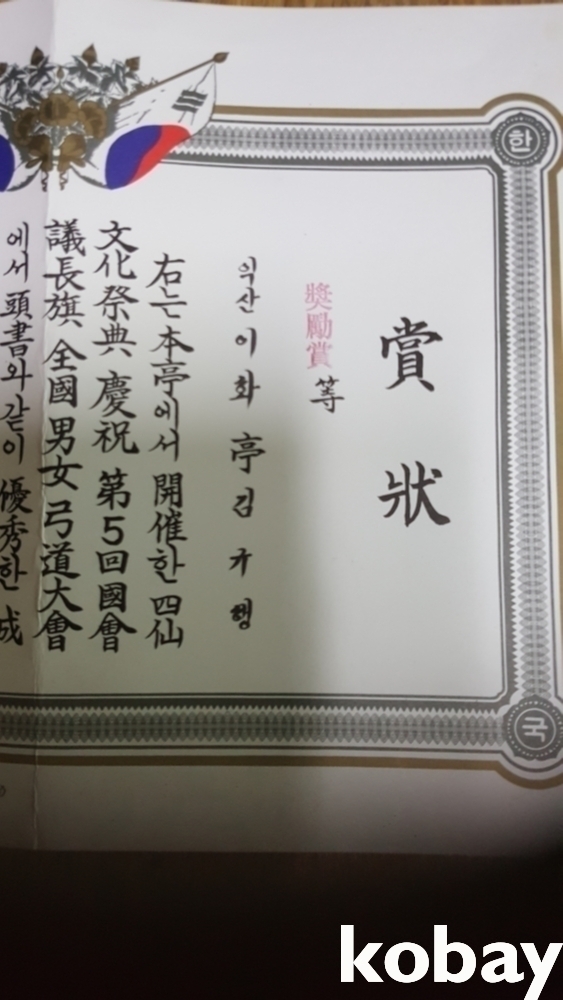 賞狀
奬勵賞 等
익산 이화亭 김규행
右는 本亭에서 開催한 四仙
文化祭典 慶祝 第5回國會
議長旗 全國 男女 弓道大會
에서 頭書와 같이 優秀한 成
한
국
kobay